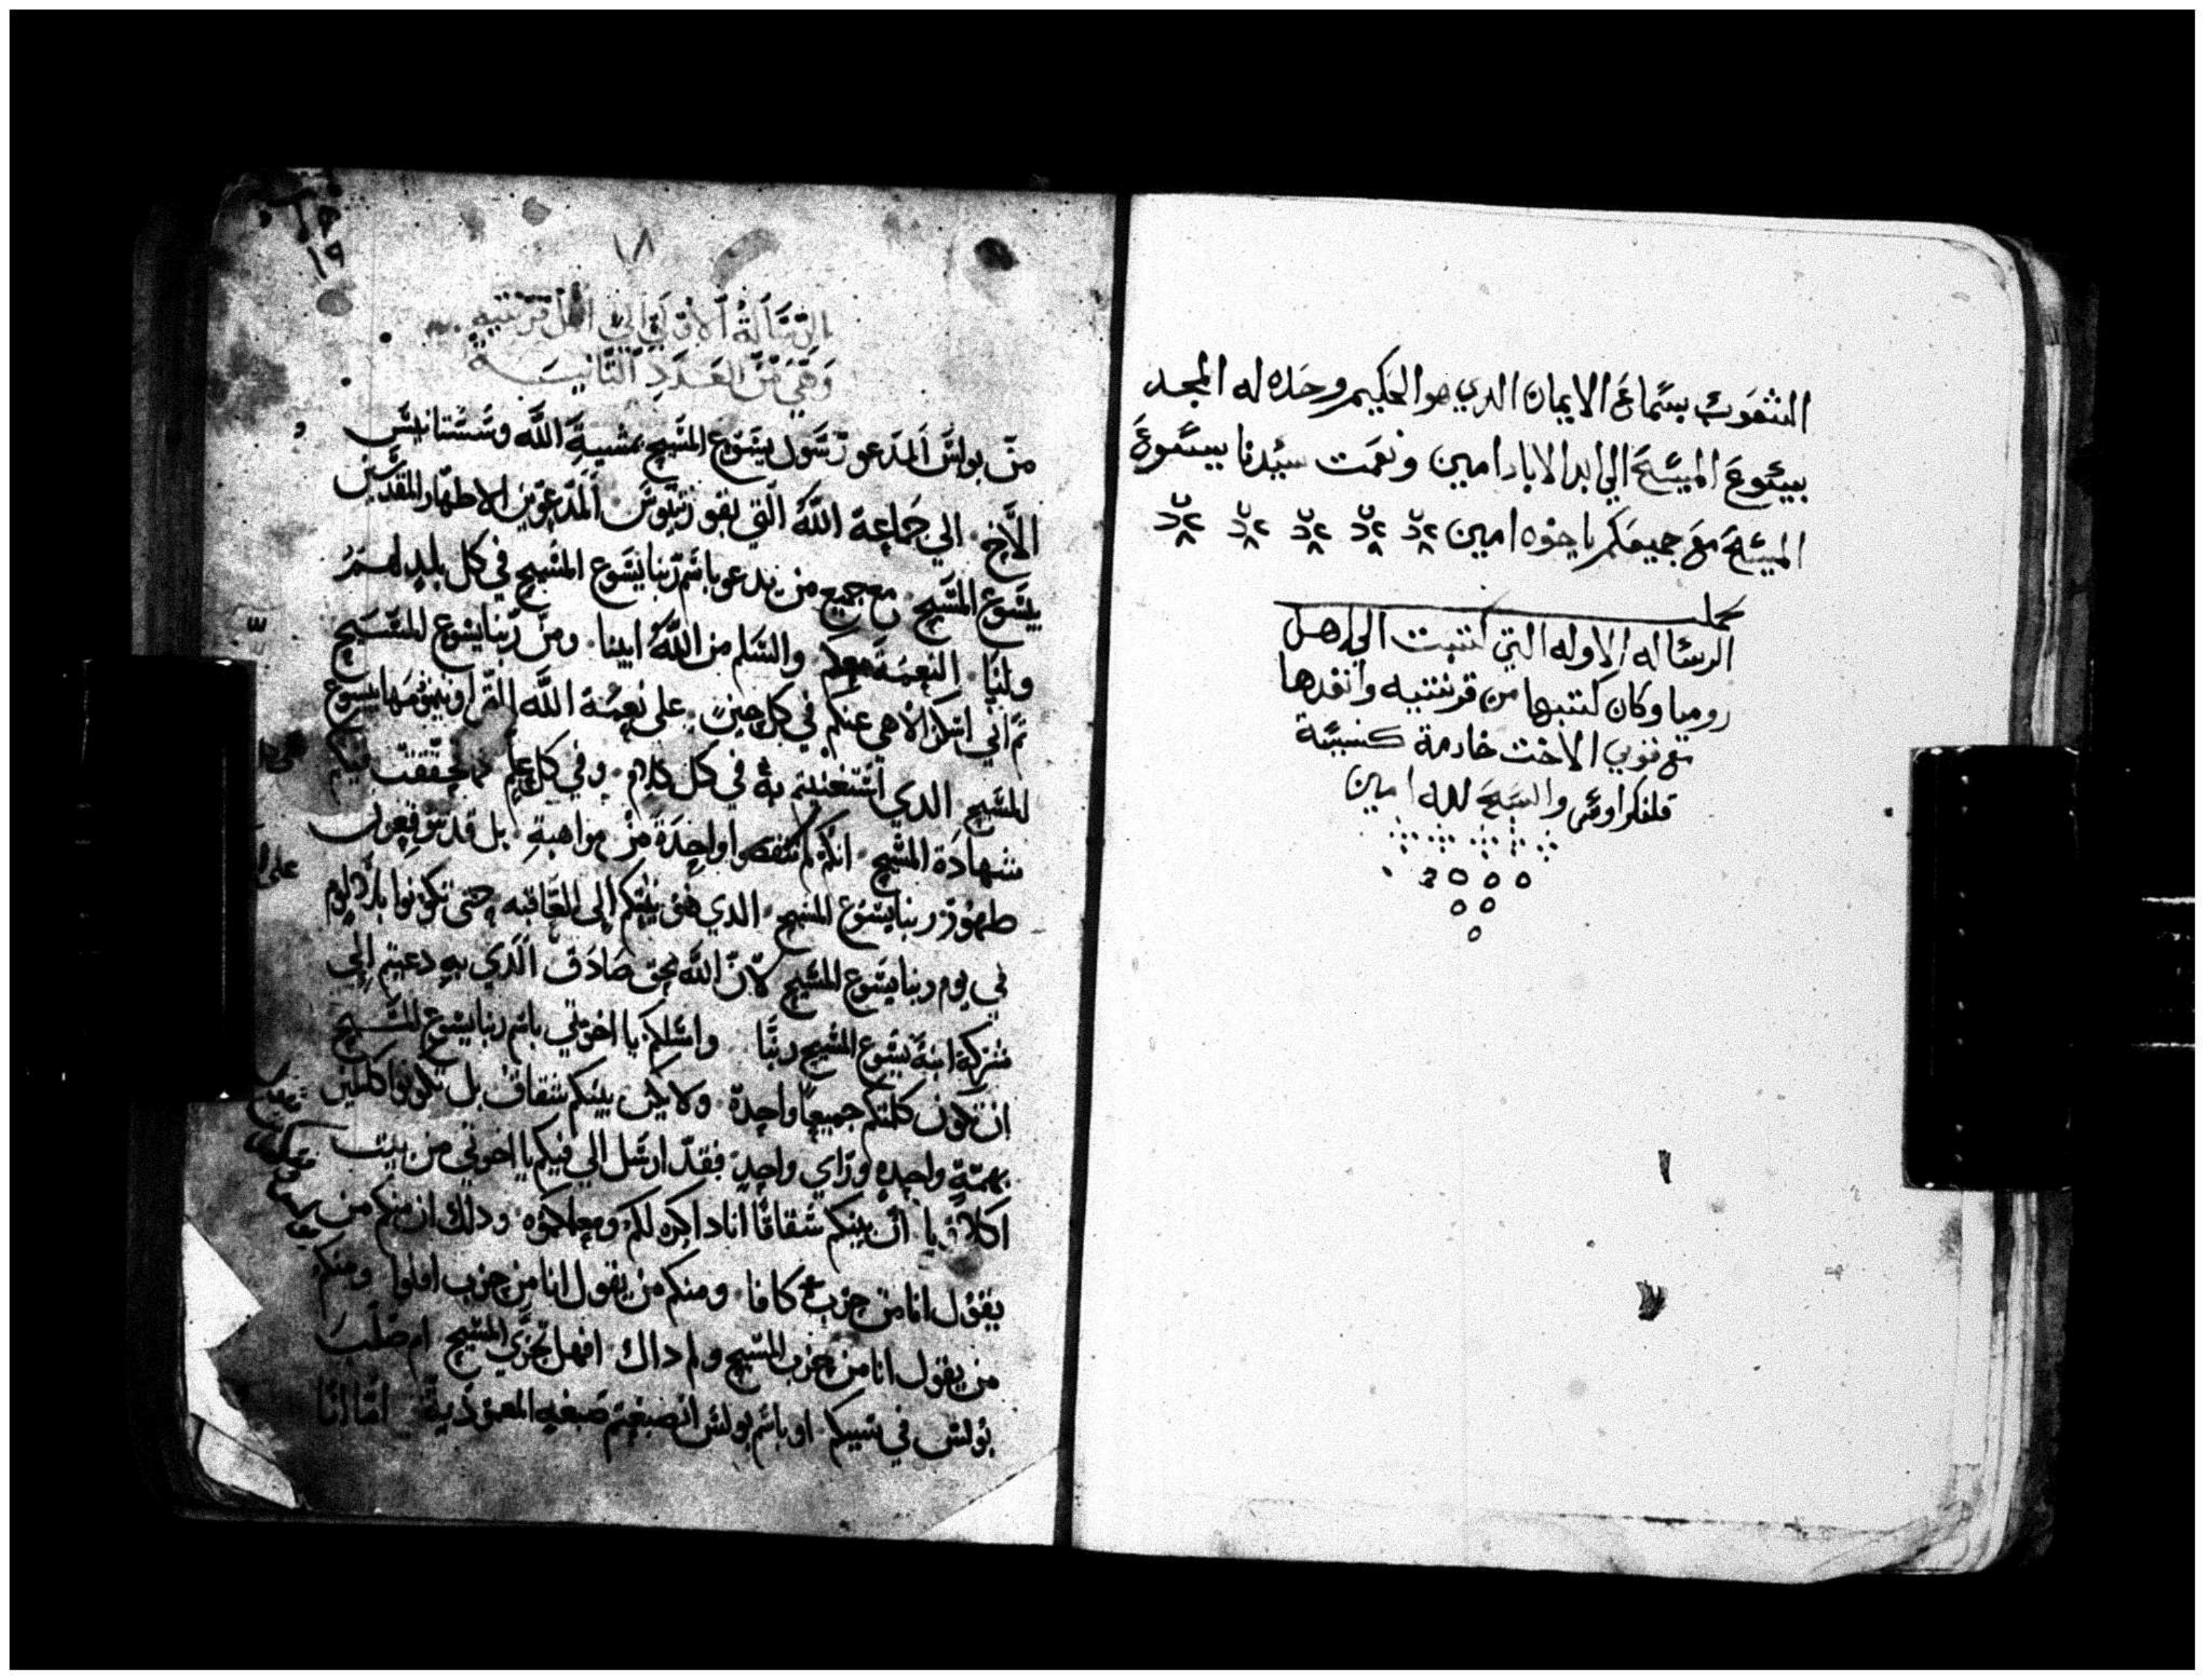 الشعوب بسماع الايمان الدي هو الحكيم وحده له المجد
بيسوع المسيح الي ابد الاباد امين ونعمت سيدنا يسوع
المسيح مع جميعكم يا خوه امين
كملت
الرساله الاوله التي كتبت الي اهل
روميا وكان كتبها من قرنتيه وانفدها
مع فوبي الاخت خادمة كنيسة
والسبح لله امين
١٨
١٩
الرسالة الاولي الي اهل قرنتية
وهي من العدد الثانية
من بولس المدعو رسول يسوع المسيح بمشية الله وسستانيس
الاخ الي جماعة الله التي بقورنتيوس المدعوين الاطهار المقدسين
بيسوع المسيح مع جميع من يدعو باسم ربنا يسوع المسيح في كل بلد لهم
ولنا النعمة معكم والسلم من الله ابينا ومن ربنا يسوع المسيح
ثم اني اشكر الاهي عنكم في كل حين علي نعمة الله التي اوتيتموها بيسوع
المسيح الدي استغنيتم به في كل كلام وفي كل علم تحققت فيكم
شهادة المسيح انكم لم تنقصوا واحدة من مواهبه بل قد تتوقعون
ظهور ربنا يسوع المسيح الدي هو يثبتكم الي العاقبه حتي تكونوا بلا لوم
في يوم ربنا يسوع المسيح لان الله بحق صادق الدي به دعيتم الي
شركة ابنه يسوع المسيح ربنا واسلكم يا اخوتي باسم ربنا يسوع المسيح
ان تكون كلمتكم جميعا واحدة ولا يكن بينكم شقاق بل تكونوا كاملين
بهمة واحده وراي واحد فقد ارسل الي فيكم يا اخوتي من بيت
اكلاويا ان بينكم شقاقا انا داكره لكم ودلك ان منكم من
يقول انا من حزب كافا ومنكم من يقول انا من حزب افلوا ومنكم
من يقول انا من حزب المسيح ولم داك افهل تجزي المسيح ام صلب
بولس في سببكم او باسم بولس انصبغتم صبغه المعمودية اما انا